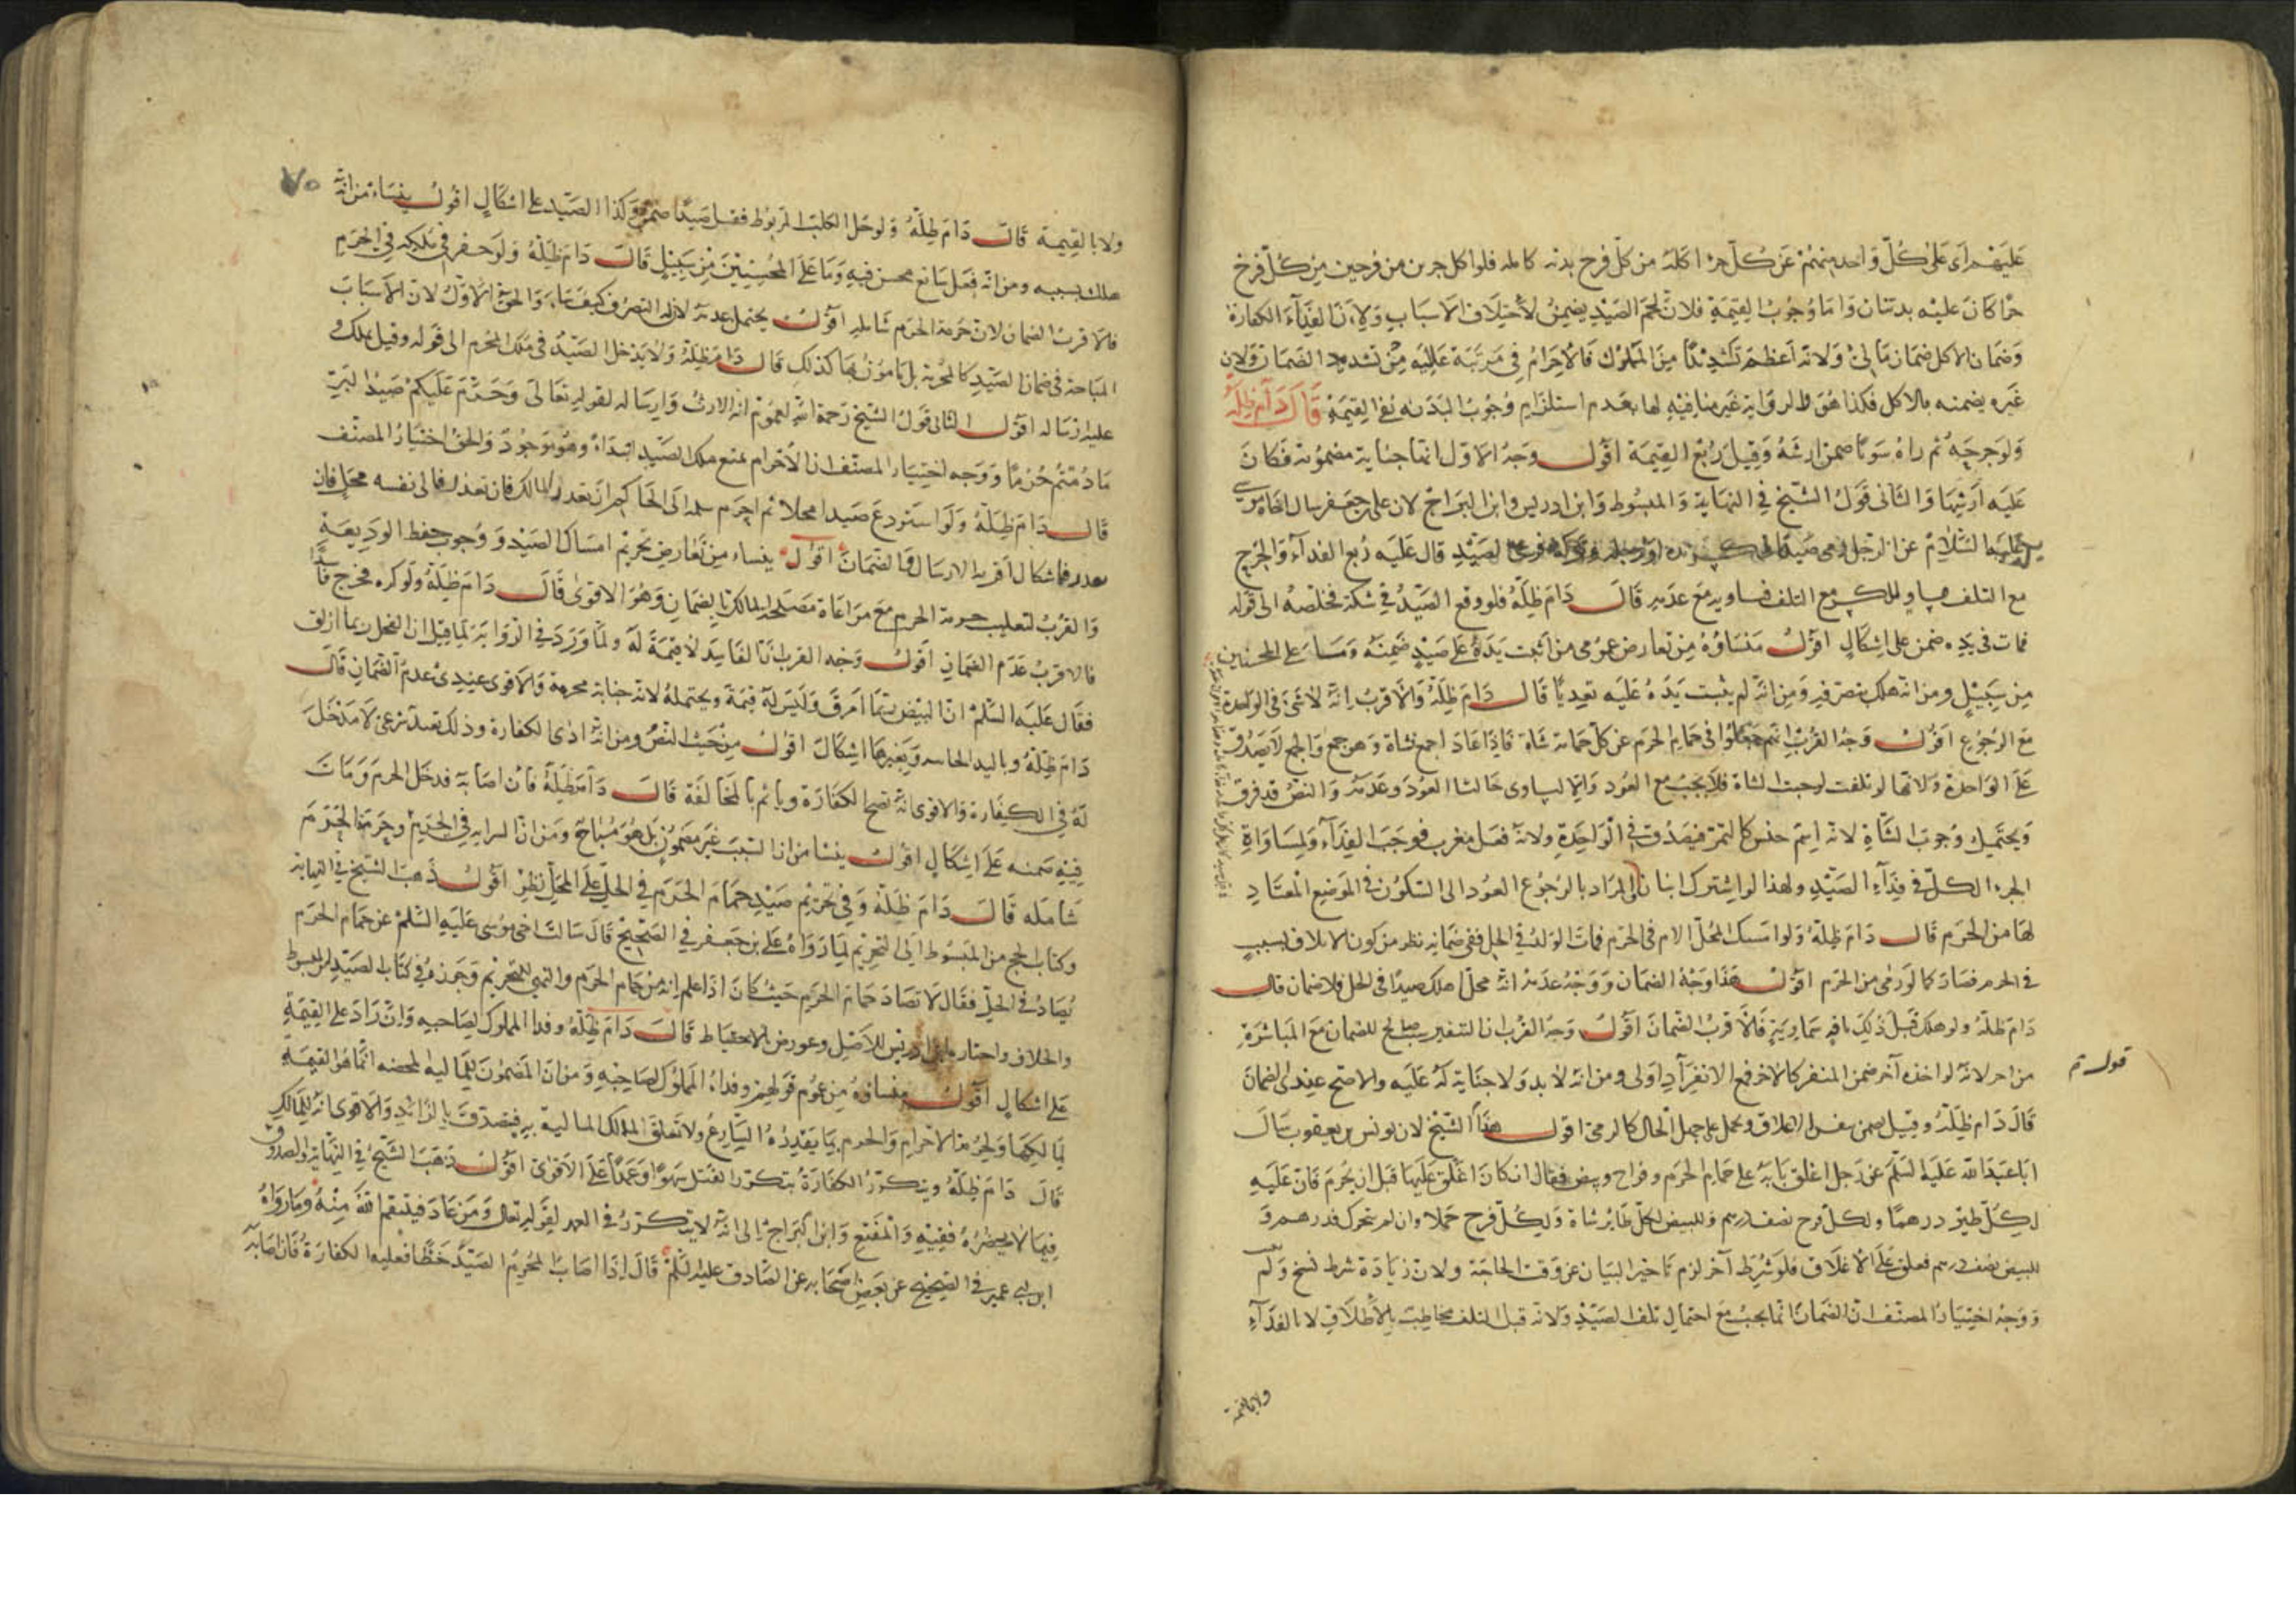 عليهم اى على كل واحد منهم عن كل جزء اكله من كل فرخ بدنة كاملة فلو اكل جزءين من فرخين من كل فرخ
جزءا كان عليه بدنتان واما وجوب القيمة فلان لحم الصيد يضمن لاختلاف الاسباب ولان الفداء الكفارة
وضمان الاكل ضمان مالى ولانه اعظم تشديدا من المملوك فالاحرام فى مرتبة عالية من تشديد الضمان ولان
غيره يضمنه بالاكل فكذا هو والرواية غير منافية لها بعدم استلزام وجوب البدنة نفى القيمة قال دام ظله
ولو جرحه ثم راه سويا ضمن ارشه وقيل ربع القيمة اقول وجه الاول انها جناية مضمونة فكان
عليه ارشها والثانى قول الشيخ فى النهاية والمبسوط وابن ادريس وابن البراج لان على بن جعفر سال اخاه موسى
عليهما السلام عن الرجل رمى صيدا الصيد قال عليه ربع الفداء والجرح
مع التلف مع التلف فساويه مع عدمه قال دام ظله فلو وقع الصيد فى شبكة فخلصه الى قوله
فمات فى يده ضمن على اشكال اقول منشاؤه من تعارض عمومى من اثبت يده على صيد ضمنه وما على المحسنين
من سبيل ومن انه هلك بتصرفه ومن انه لم يثبت يده عليه تعديا قال دام ظله والاقرب انه لا شئ فى الواحدة
مع الرجوع اقول وجه القرب انهم جعلوا فى حمام الحرم عن كل حمامة شاة فاذا عاد اجمع فشاة وهو جمع والجمع لا يصدق
على الواحدة ولانها لو تلفت لوجبت الشاة فلا يجب مع العود والا لساوى حالتا العود وعدمه والنص قد فرق
ويحتمل وجوب الشاة لانه اسم جنس كالتمر فيصدق فى الواحدة ولانه فعل مغرب فوجب الفداء ولمساواة
الجزء الكل فى فداء الصيد ولهذا لو اشترك اثنان والمراد بالرجوع العود الى السكون فى الموضع المعتاد
لها من الحرم قال دام ظله ولو امسك المحل الام فى الحرم فمات الولد فى الحل ففى ضمانه نظر من كون الاتلاف بسبب
فى الحرم فصار كما لو رمى من الحرم اقول هذا وجه الضمان ووجه عدمه انه محل اهلك صيدا فى الحل فلا ضمان قال
دام ظله ولو هلك قبل ذلك بافة سماوية فالاقرب الضمان اقول وجه القرب ان التنفير سبب صالح للضمان مع المباشرة
من اخر لانه لو اخذه آخر ضمن المنفر كالاخر فمع الانفراد اولى ومن انه لا يد ولا جناية له عليه والاصح عندى الضمان
قال دام ظله وقيل يضمن بنفس الاغلاق ويحمل على جهل الحال كالرمى اقول هذا قول الشيخ لان يونس بن يعقوب سال
ابا عبد الله عليه السلم عن رجل اغلق بابه على حمام الحرم وفراخ وبيض فقال ان كان اغلق عليها قبل ان يحرم فان عليه
لكل طير درهما ولكل فرخ نصف درهم وللبيض لكل طائر شاة ولكل فرخ حملا وان لم يتحرك فدرهم و
للبيض نصف درهم فعلق على الاغلاق فلو شرط آخر لزم تاخير البيان عن وقت الحاجة ولان زيادة شرط نسخ ولم
ووجه اختيار المصنف ان الضمان انما يجب مع احتمال تلف الصيد ولانه قبل التلف مخاطب بالاطلاق لا بالفداء
قول تم
ولا بالقيمة
٧٥
ولا بالقيمة قال دام ظله ولو حل الكلب المربوط فقتل صيدا ضمن وكذا الصيد على اشكال اقول ينشاء من انه
هلك بسببه ومن انه فعل سائغ محسن فيه وما على المحسنين من سبيل قال دام ظله ولو حفر فى ملكه فى الحرم
فالاقرب الضمان لان حرمة الحرم شاملة اقول يحتمل عدمه لان له التصرف كيف شاء والحق الاول لان الاسباب
المباحة فى ضمان الصيد كالمحرمة بل المامور بها كذلك قال دام ظله ولا يدخل الصيد فى ملك المحرم الى قوله وقيل يملك و
عليه ارساله اقول الثانى قول الشيخ رحمة الله لعموم اية الارث وارساله لقوله تعالى وحرم عليكم صيد البر
ما دمتم حرما ووجه اختيار المصنف ان الاحرام يمنع ملك الصيد ابتداء وهو موجود والحق اختيار المصنف
قال دام ظله ولو استودع صيدا محلا ثم احرم سلمه الى الحاكم ان تعذر المالك فان تعذر فالى ثقة محل فان
تعذر فاشكال اقربه الارسال والضمان اقول ينشاء من تعارض تحريم امساك الصيد ووجوب حفظ الوديعة
والقرب لتغليب حرمة الحرم مع مراعاة مصلحة المالك بالضمان وهو الاقوى قال دام ظله ولو كسره فخرج فاسدا
فالاقرب عدم الضمان اقول وجه القرب ان الفاسد لا قيمة له ولما ورد فى الرواية لما قيل ان الفحل ربما ازلق
فقال عليه السلم ان البيض ربما امرق وليس له قيمة ويحتمله لانه جناية محرمة والاقوى عندى عدم الضمان قال
دام ظله وباليد وبغيرها اشكال اقول من حيث النص ومن انه ادى الكفارة وذلك تعبد شرعى لا مدخل
له فى الكفارة والاقوى انه تصح الكفارة وياثم بالمخالفة قال دام ظله فان اصابه فدخل الحرم ومات
فيه ضمنه على اشكال اقول ينشا من ان السبب غير مضمون بل هو مباح ومن ان السراية فى الحرم وحرمة الحرم
شاملة قال دام ظله وفى تحريم صيد حمام الحرم فى الحل على المحل نظر اقول ذهب الشيخ فى النهاية
وكتاب الحج من المبسوط الى التحريم لما رواه على بن جعفر فى الصحيح قال سالت اخى موسى عليه السلم عن حمام الحرم
يصاد فى الحل فقال لا تصاد حمام الحرم حيث كان اذا علم انه من حمام الحرم والنهى للتحريم وجوزه فى كتاب الصيد من المبسوط
والخلاف واختاره ابن ادريس للاصل وعورض بالاحتياط قال دام ظله وفداء المملوك لصاحبه وان زاد على القيمة
على اشكال اقول منشاؤه من عموم قولهم وفداء المملوك لصاحبه ومن ان المضمون لمالكه انما هو القيمة
لمالكها ولحرمة الاحرام والحرم بما يقدره الشارع ولا تعلق لمالك المالية به فيتصدق بالزائد والاقوى انه للمالك
قال دام ظله ويتكرر الكفارة بتكرر القتل سهوا وعمدا على الاقوى اقول ذهب الشيخ فى النهاية والصدوق
فيما لا يحضره فقيه والمقنع وابن البراج الى انه لا يتكرر فى العمد لقوله تعالى ومن عاد فينتقم الله منه وما رواه
ابن ابى عمير فى الصحيح عن بعض اصحابه عن الصادق عليه السلم قال اذا اصاب المحرم الصيد خطأ فعليه الكفارة فان اصابه